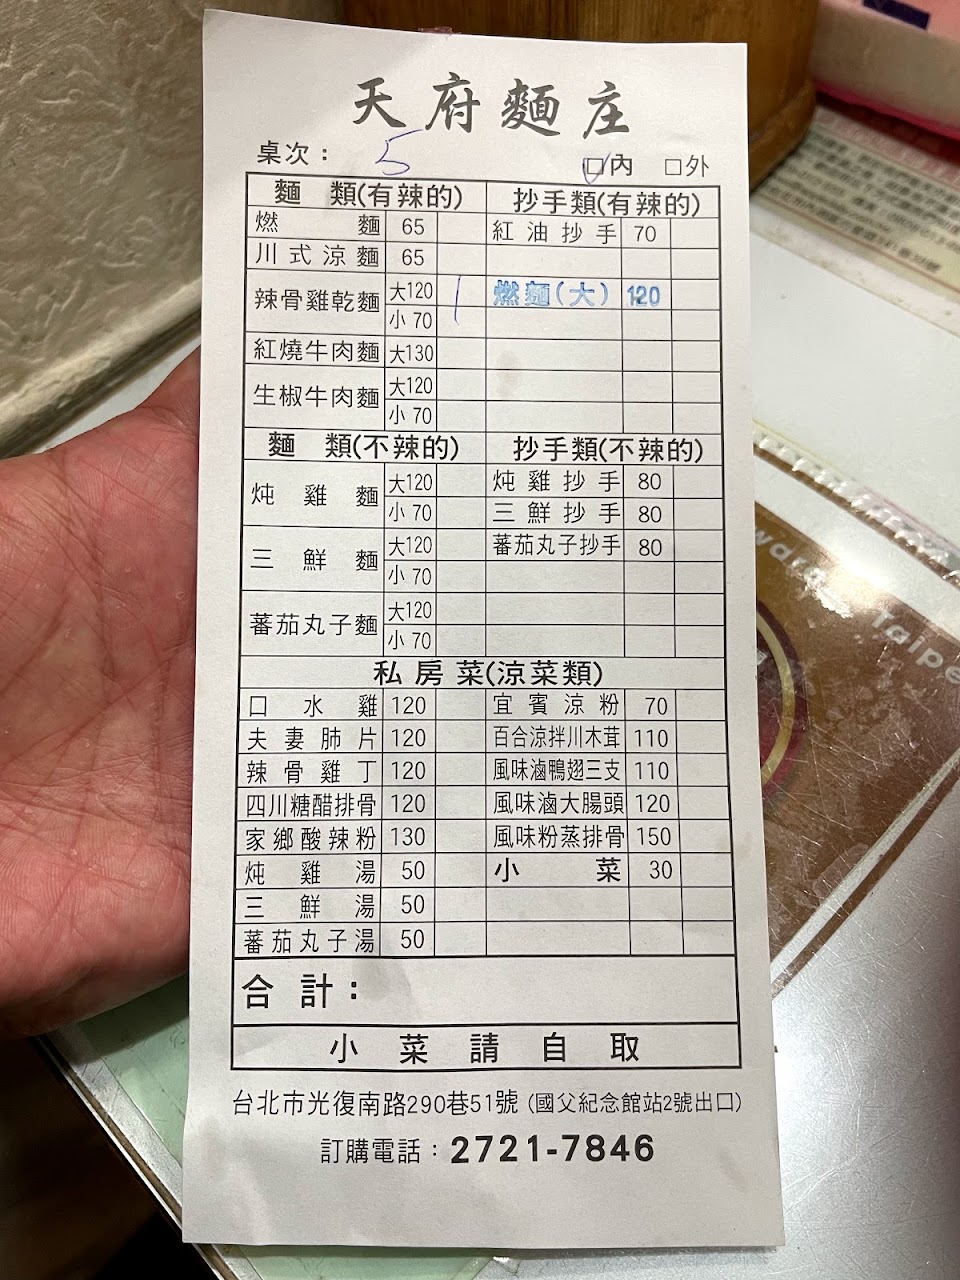 天府麵庄
桌次： 5 ☑內 □外
麵 類(有辣的) 抄手類(有辣的)
燃 麵 65 紅油抄手 70
川式涼麵 65
辣骨雞乾麵 大120 1 燃麵(大) 120
小 70
紅燒牛肉麵 大130
生椒牛肉麵 大120
小 70
麵 類(不辣的) 抄手類(不辣的)
炖雞麵 大120 炖雞抄手 80
小 70 三鮮抄手 80
三鮮麵 大120 蕃茄丸子抄手 80
小 70
蕃茄丸子麵 大120
小 70
私房菜(涼菜類)
口水雞 120 宜賓涼粉 70
夫妻肺片 120 百合涼拌川木茸 110
辣骨雞丁 120 風味滷鴨翅三支 110
四川糖醋排骨 120 風味滷大腸頭 120
家鄉酸辣粉 130 風味粉蒸排骨 150
炖雞湯 50 小菜 30
三鮮湯 50
蕃茄丸子湯 50
合計：
小菜請自取
台北市光復南路290巷51號 (國父紀念館站2號出口)
訂購電話：2721-7846
Taipe